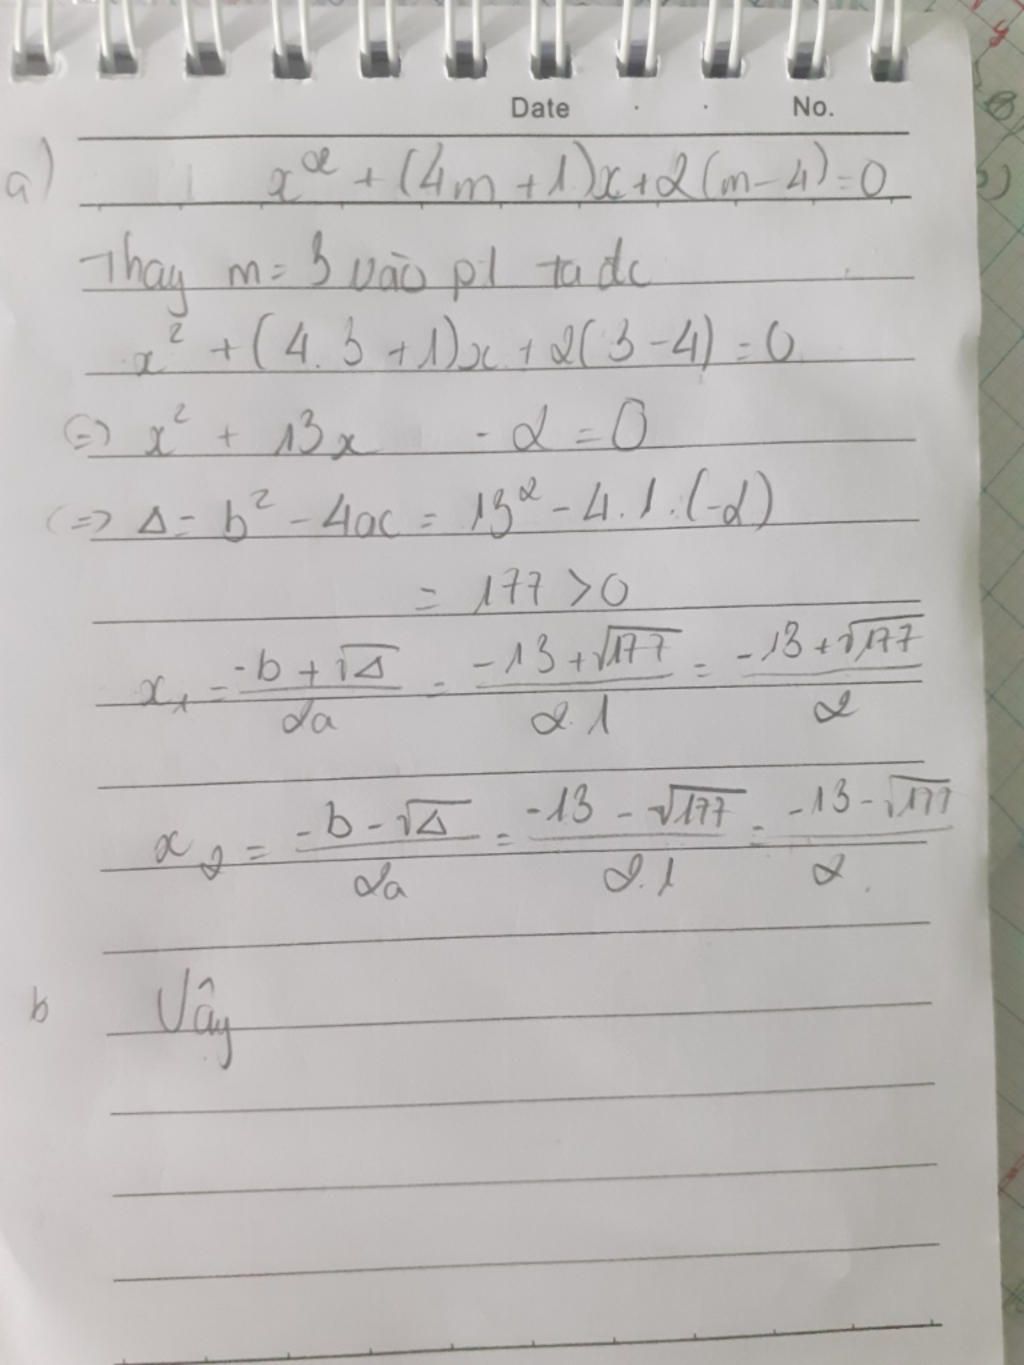 Date . . No.
a) x² + (4m + 1)x + 2(m - 4) = 0
Thay m = 3 vào pt ta dc
x² + (4.3 + 1)x + 2(3 - 4) = 0
(=) x² + 13x - 2 = 0
(=) Δ = b² - 4ac = 13² - 4.1.(-2)
= 177 > 0
x₁ = (-b + √Δ)/2a = (-13 + √177)/2.1 = (-13 + √177)/2
x₂ = (-b - √Δ)/2a = (-13 - √177)/2.1 = (-13 - √177)/2.
b Vậy